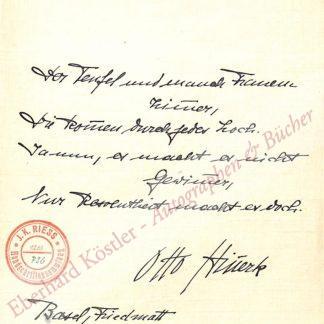 Der Teufel und manch Frauen-
zimmer,
Die kommen durch jedes Loch.
Ja nun, er macht er nicht
Gewimmer,
Nur macht er doch.
Otto Hinerk
Basel, Friedmatt
J. K. RIESS
Eberhard Köstler - Autographen & Bücher